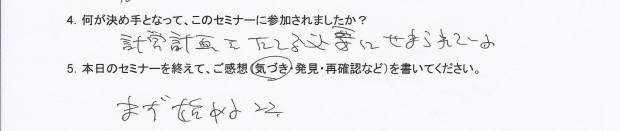 4. 何が決め手となって、このセミナーに参加されましたか？
計営計画を たてる必要に せまられて
5. 本日のセミナーを終えて、ご感想（気づき・発見・再確認など）を書いてください。
まず始める